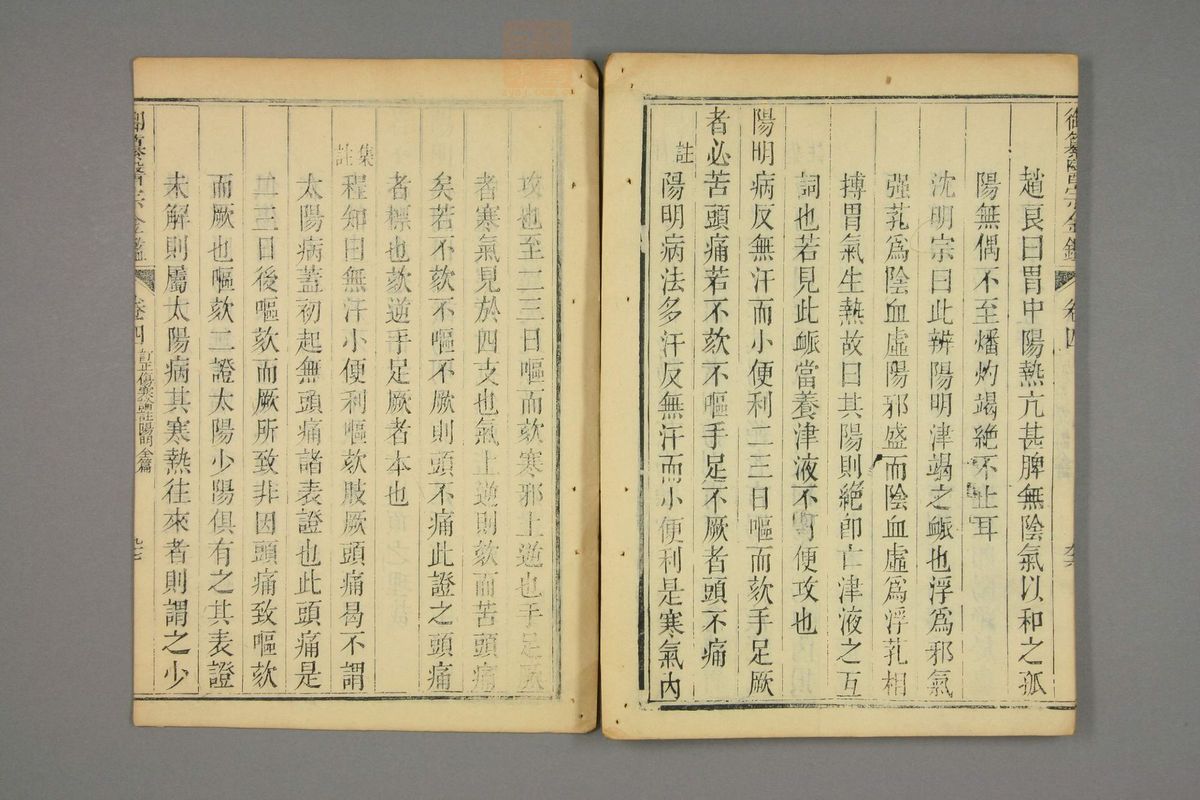 御纂醫宗金鑑 卷四
趙良曰胃中陽熱亢甚脾無陰氣以和之孤
陽無偶不至燔灼竭絕不止耳
沈明宗曰此辨陽明津竭之脈也浮為邪氣
強芤為陰血虛陽邪盛而陰血虛為浮芤相
摶胃氣生熱故曰其陽則絕即亡津液之互
詞也若見此脈當養津液不可便攻也
陽明病反無汗而小便利二三日嘔而欬手足厥
者必苦頭痛若不欬不嘔手足不厥者頭不痛
註 陽明病法多汗反無汗而小便利是寒氣內
攻也至二三日嘔而欬寒邪上逆也手足厥
者寒氣見於四支也氣上逆則欬而苦頭痛
矣若不欬不嘔不厥則頭不痛此證之頭痛
者標也欬逆手足厥者本也
集註 程知曰無汗小便利嘔欬肢厥頭痛曷不謂
太陽病蓋初起無頭痛諸表證也此頭痛是
二三日後嘔欬而厥所致非因頭痛致嘔欬
而厥也嘔欬二證太陽少陽俱有之其表證
未解則屬太陽病其寒熱往來者則謂之少
御纂醫宗金鑑 卷四 訂正傷寒論註陽明全篇 九七